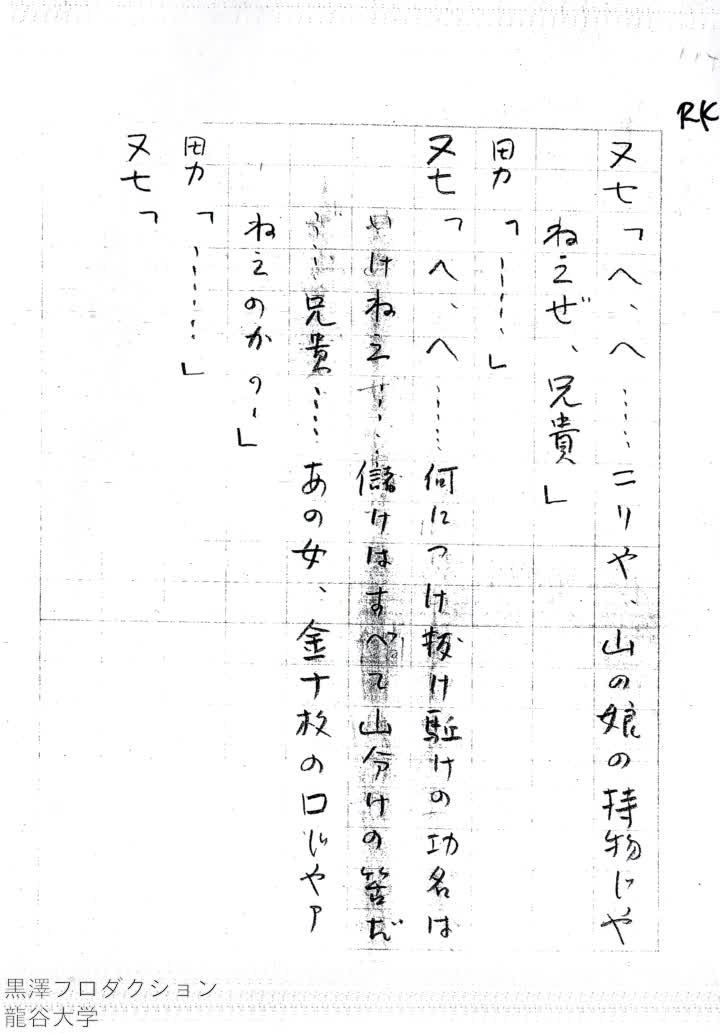 RK
又七「へ、へ……こりや、山の娘の持物じや
ねえぜ、兄貴」
男「……」
又七「へ、へ……何につけ抜け駈けの功名は
いけねえ……儲けはすべて山分けの筈だ
……兄貴……あの女、金十枚の口じやア
ねえのかの―」
男「……」
又七「
黒澤プロダクション
龍谷大学